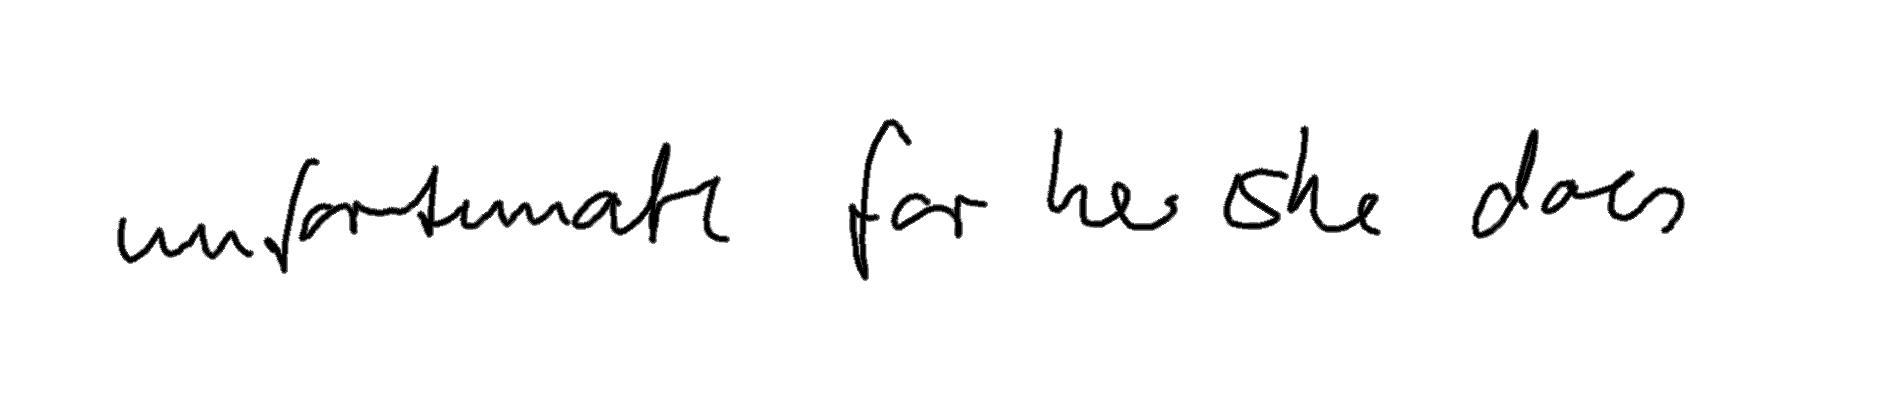 unfortunate for her she does